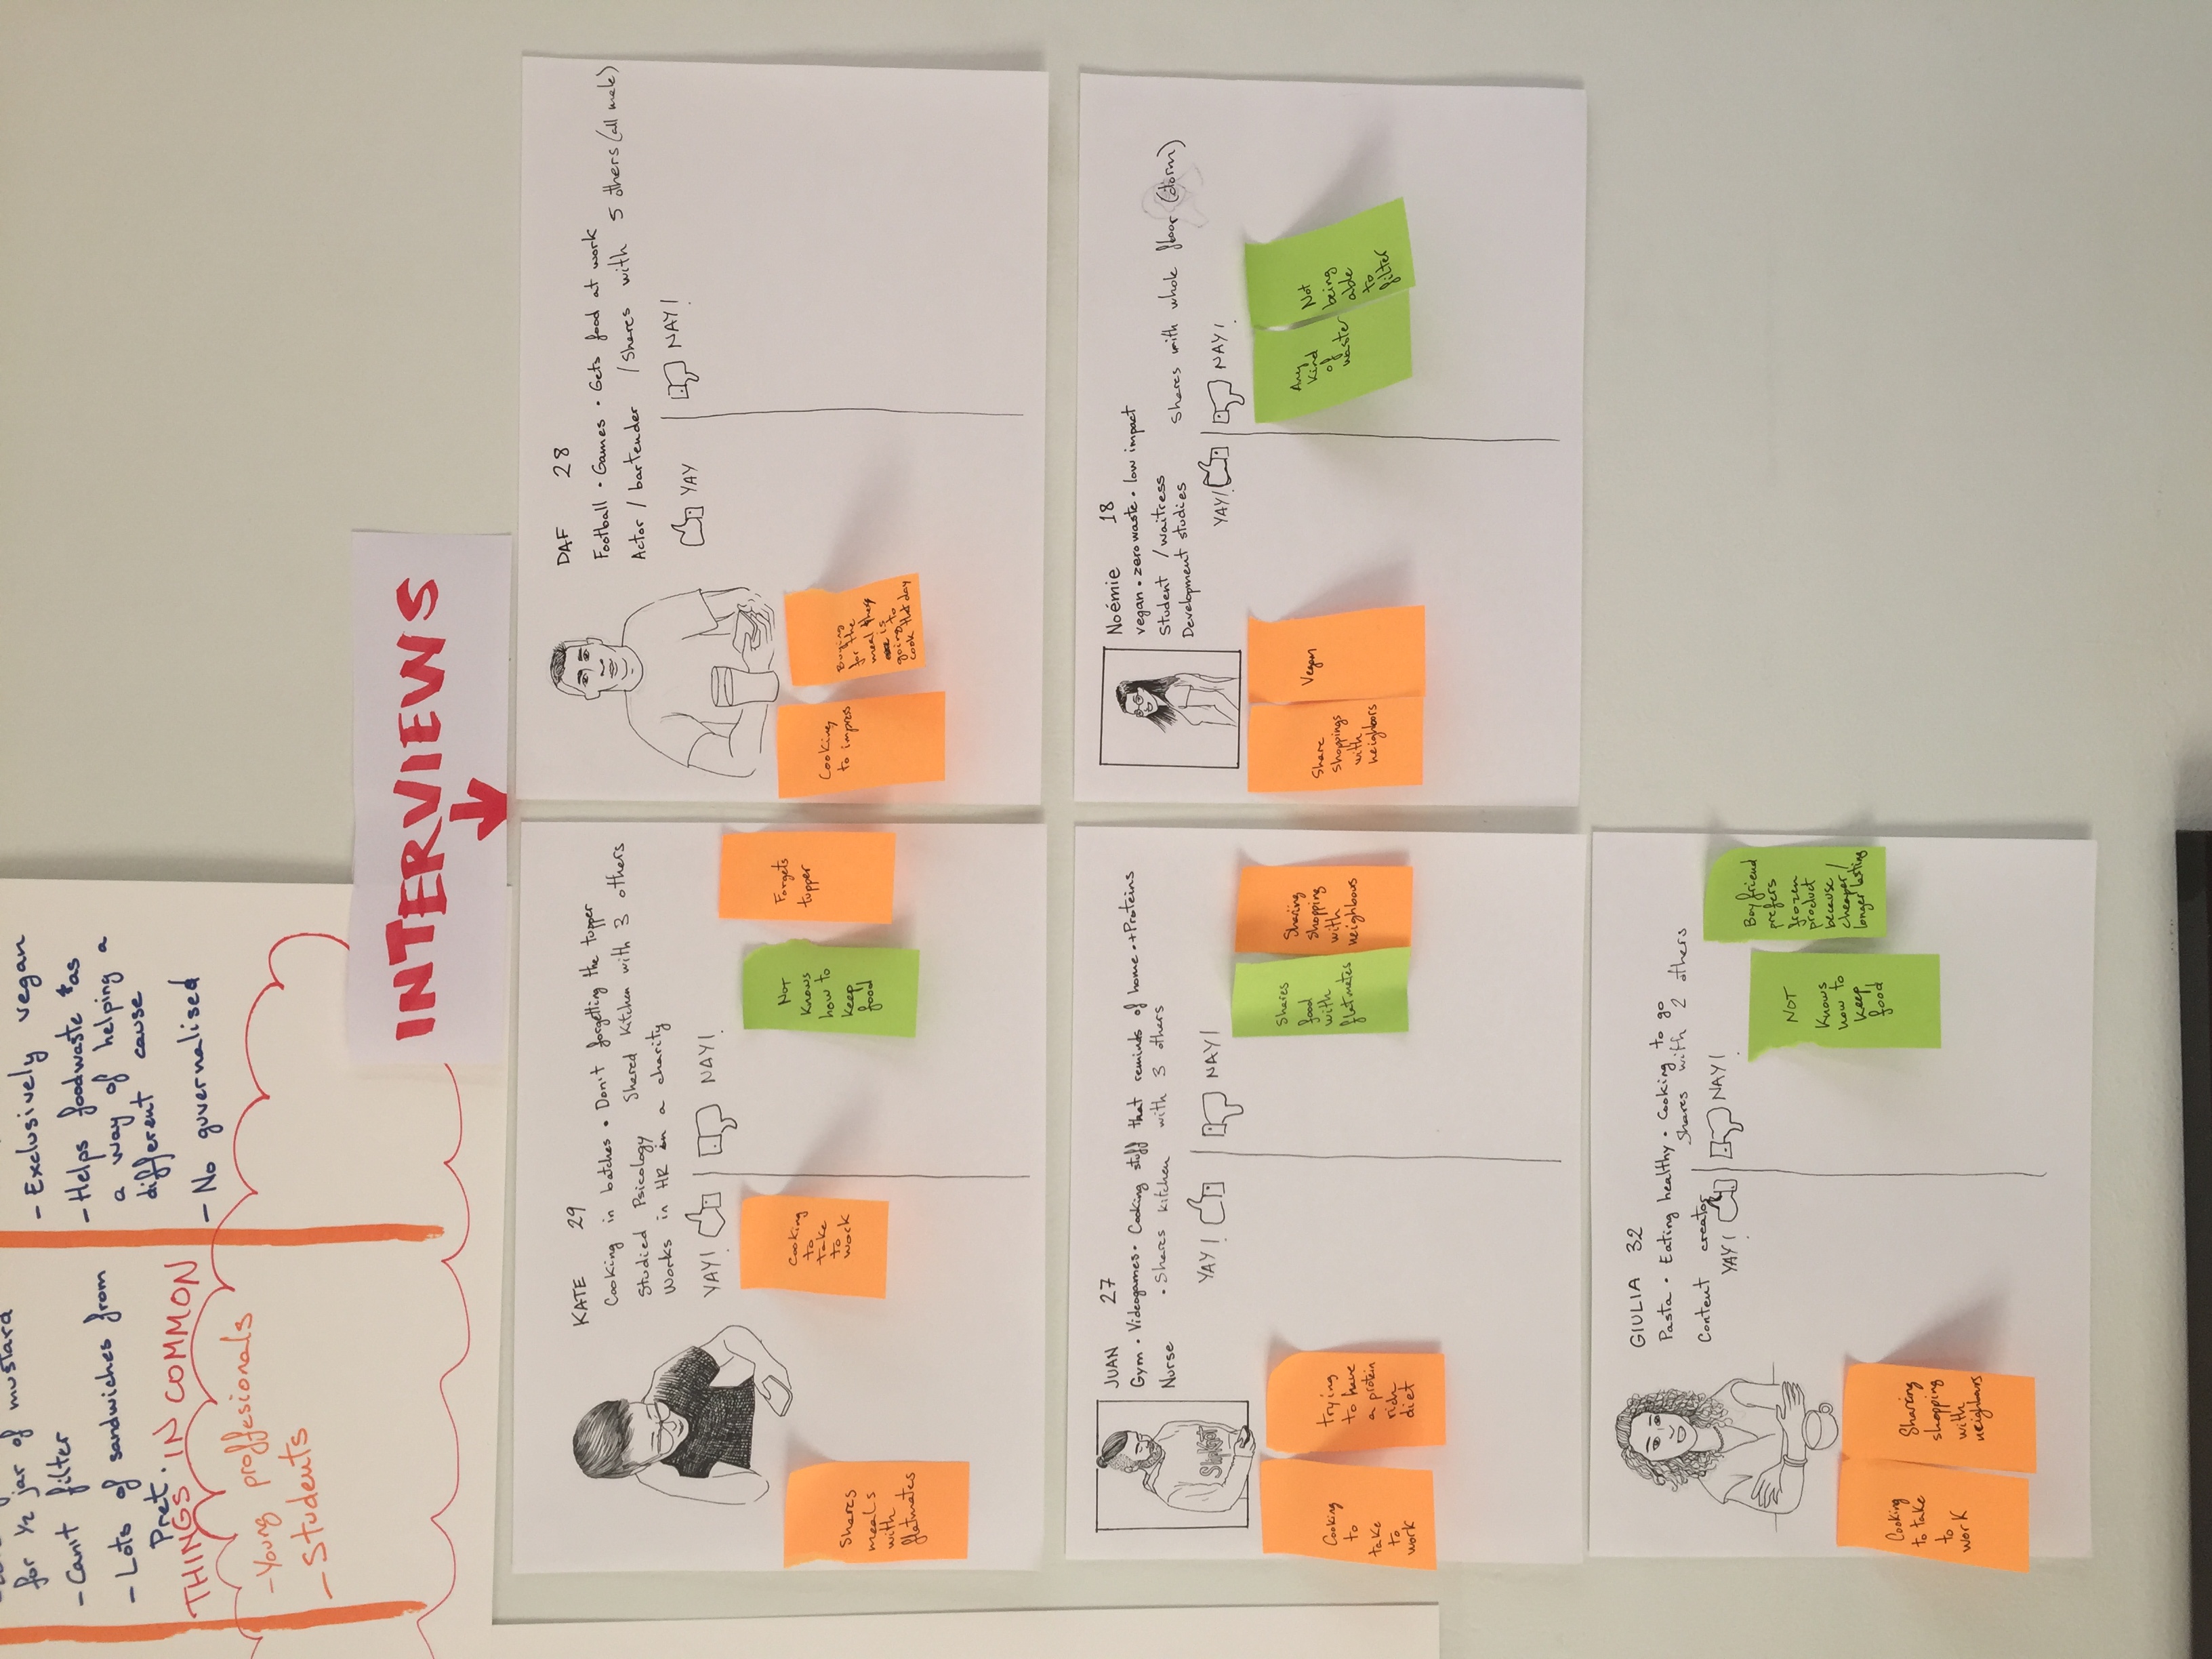 for ½ jar of mustard
- Can't filter
- Lots of sandwiches from
Pret.
- Exclusively vegan
- Helps foodwaste as
a way of helping a
different cause
- No guvernalised
THINGS IN COMMON
- Young proffesionals
- Students
INTERVIEWS
KATE 29
Cooking in batches • Don't forgetting the tupper
Studied Psicology Shared Kitchen with 3 others
Works in HR in a charity
YAY! NAY!
Shares
meals
with
flatmates
Cooking
to
take
to
work
NOT
Knows
how to
keep
food
Forgets
tupper
DAF 28
Football • Games • Gets food at work
Actor / bartender / Shares with 5 others (all male)
YAY NAY!
Cooking
to impress
Buying
for the
meal
is
going to
cook that day
JUAN 27
Gym • Videogames • Cooking stuff that reminds of home • +Proteins
Nurse • Shares kitchen with 3 others
YAY! NAY!
SlipKnot
Cooking
to
take
to
work
trying
to have
a protein
rich
diet
Shares
food
with
flatmates
Sharing
shopping
with
neighbous
Noémie 18
vegan • zero waste • low impact
Student / waitress
Development studies Shares with whole floor (dorm)
YAY! NAY!
Share
shoppings
with
neighbors
Vegan
Any
kind
of
waster
Not
being
able
to
filter
GIULIA 32
Pasta • Eating healthy • Cooking to go
Shares with 2 others
Content creator
YAY! NAY!
Cooking
to take
to
work
Sharing
shopping
with
neighbours
NOT
Knows
how to
keep
food
Boyfriend
prefers
frozen
product
because
cheaper /
longer lasting